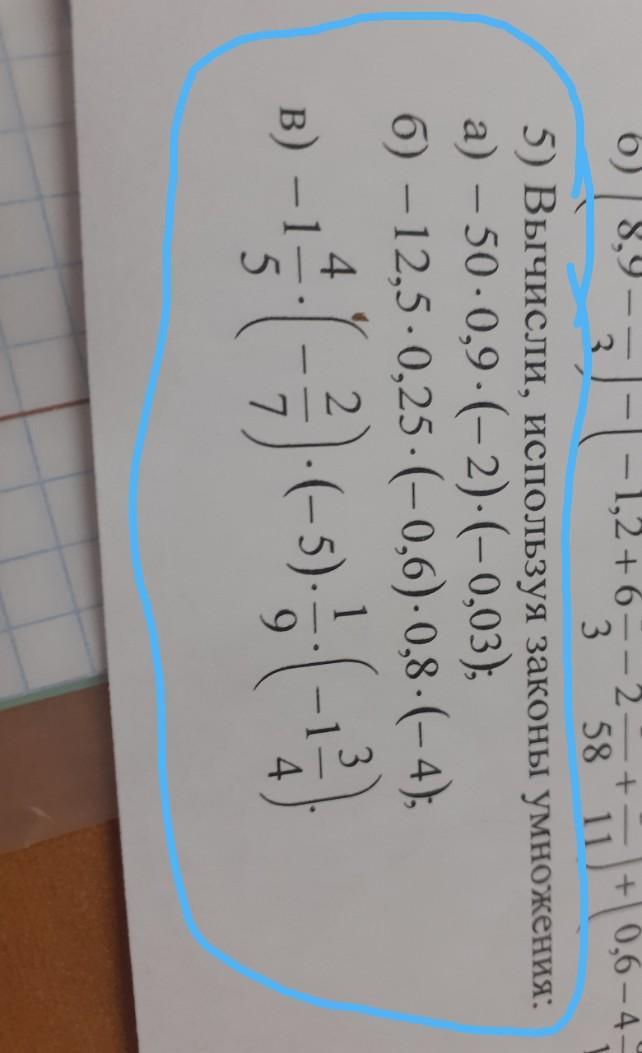 б) (8,9 − — 3) − (−1,2 + 6 — 3 − 2 — 58 + — 11) + (0,6 − 4
5) Вычисли, используя законы умножения:
а) −50 · 0,9 · (−2) · (−0,03);
б) −12,5 · 0,25 · (−0,6) · 0,8 · (−4);
в) −1 4/5 · (−2/7) · (−5) · 1/9 · (−1 3/4).